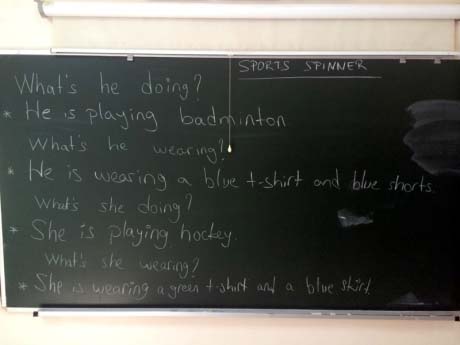 SPORTS SPINNER
What's he doing?
* He is playing badminton
What's he wearing?
* He is wearing a blue t-shirt and blue shorts.
What's she doing?
* She is playing hockey.
What's she wearing?
* She is wearing a green t-shirt and a blue skirt.